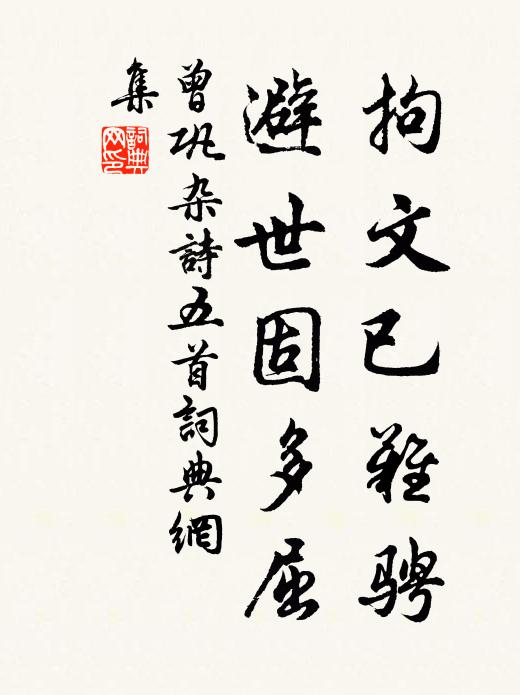 拘文已難骋
避世固多屈
曾巩杂詩五首詞典網
集
詞典
网印